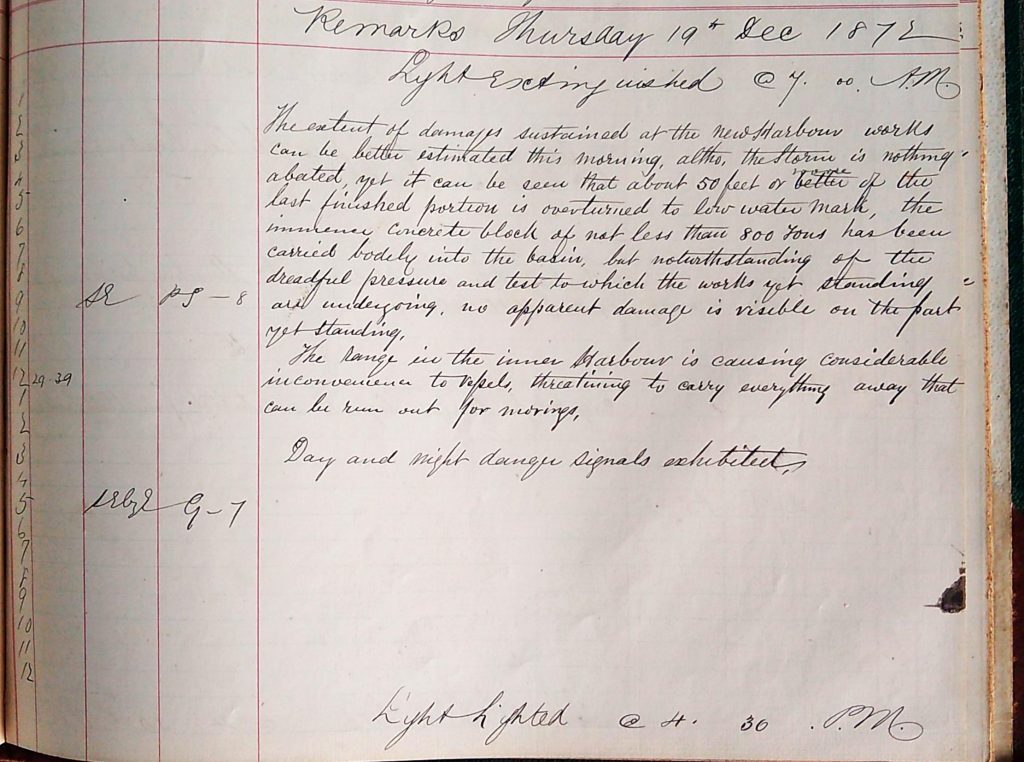 Remarks Thursday 19th Dec 1872
Light Extinguished @ 7. 00. A.M.
1
2
3
4
5
6
7
8
9
10
11
12
1
2
3
4
5
6
7
8
9
10
11
12
29.39
SE PS - 8
SEbyE G - 7
The extent of damages sustained at the new Harbour works
can be better estimated this morning, altho, the Storm is nothing
abated, yet it can be seen that about 50 feet or better more of the
last finished portion is overturned to low water mark, the
immence Concrete block of not less than 800 Tons has been
carried bodely into the basin, but notwithstanding of the
dreadful pressure and test to which the works yet standing
are undergoing, no apparent damage is visible on the part
yet standing.
The Range in the inner Harbour is causing considerable
inconvenience to Vessels, threatining to carry everything away that
can be run out for morings,
Day and night danger signals exhibited,
Light Lighted @ 4. 30 . P.M.